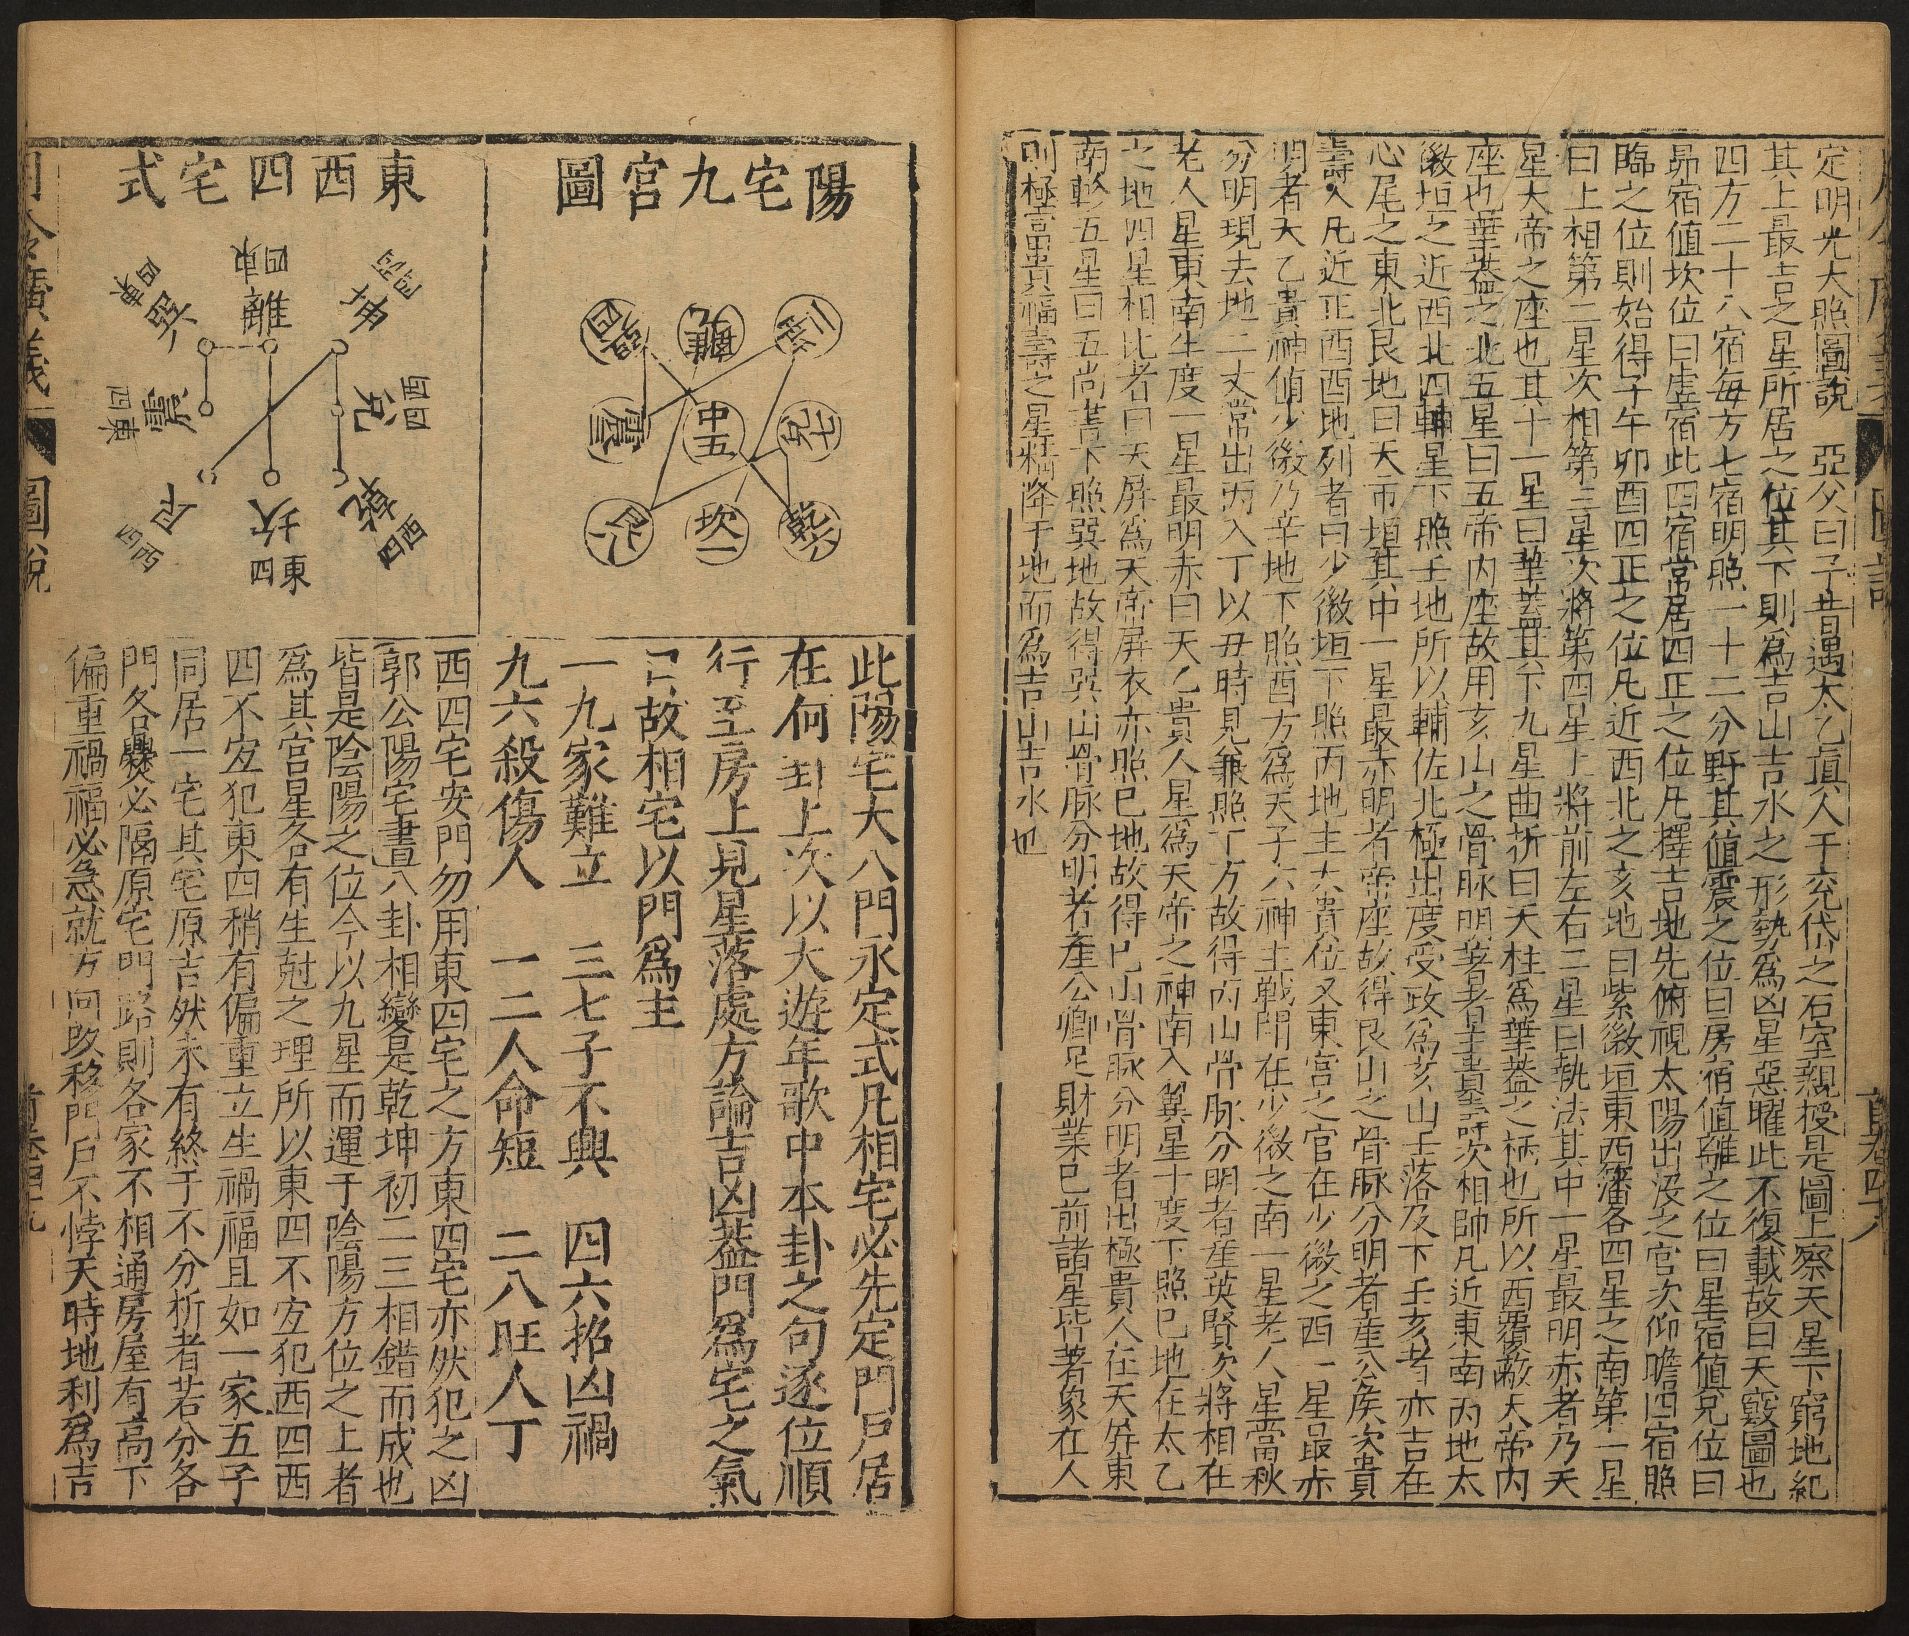 定明光大照圖說　亞父曰予昔遇太乙眞人于兗岱之石室親授是圖上察天星下窮地紀
其上最吉之星所居之位其下則爲吉山吉水之形勢爲凶星惡曜此不復載故曰天竅圖也
四方二十八宿每方七宿明照一十二分野其值震之位曰房宿值離之位曰星宿值兌位曰
昴宿值坎位曰虛宿此四宿常居四正之位凡擇吉地先俯視太陽出沒之宫次仰瞻四宿照
臨之位則始得子午卯酉四正之位凡近西北之亥地曰紫微垣東西籓各四星之南第一星
曰上相第二星次相第三星次將第四星上將前左右二星曰執法其中一星最明赤者乃天
星大帝之座也其十一星曰華蓋其下九星曲折曰天柱爲華蓋之柄也所以西覆敝大帝内
座也華蓋之北五星曰五帝内座故用亥山之骨脉明著者主貴壽次相帥凡近東南丙地太
微垣之近西北四輔星下照壬地所以輔佐北極出度受政爲亥山壬落及下壬亥者亦吉在
心尾之東北艮地曰天市垣其中一星最赤明者帝座故得艮山之骨脉分明者産公侯次貴
壽人凡近正酉酉地列者曰少微垣下照丙地主大貴位又東宫之官在少微之西一星最赤
明者天乙貴神值少微乃辛地下照酉方爲天子六神主戰鬪在少微之南一星老人星當秋
分明現去地二丈常出丙入丁以丑時見兼照丁方故得丙山骨脉分明者産英賢次將相在
老人星東南半度一星最明赤曰天乙貴人星爲天帝之神南入翼星十度下照巳地在太乙
之地四星相比者曰天屏爲天帝屏衣亦照巳地故得巳山骨脉分明者出極貴人在天屏東
南軫五星曰五尚書下照巽地故得巽山骨脉分明者産公卿足財業已前諸星皆著象在人
則極富貴福壽之星精降于地而爲吉山吉水也
陽宅九宫圖
巽四
離九
坤二
震三
中五
兌七
艮八
坎一
乾六
東西四宅式
坤
西四
離
東四
巽
東四
兌
西四
震
東四
乾
西四
坎
東四
艮
西四
此陽宅大八門永定式凡相宅必先定門尸居
在何卦上次以大遊年歌中本卦之句逐位順
行至房上見星落處方論吉凶蓋門爲宅之氣
口故相宅以門爲主
一九家難立　三七子不興　四六招凶禍
九六殺傷人　一二人命短　二八旺人丁
西四宅安門勿用東四宅之方東四宅亦然犯之凶
郭公陽宅晝八卦相變是乾坤初二三相錯而成也
皆是陰陽之位今以九星而運于陰陽方位之上者
爲其宫星各有生尅之理所以東四不宜犯西四西
四不宜犯東四稍有偏重立生禍福且如一家五子
同居一宅其宅原吉然未有終于不分析者若分各
門各爨必隔原宅門路則各家不相通房屋有高下
偏重禍福必急就方向改移門戶不悖天時地利爲吉
月令廣義
圖說